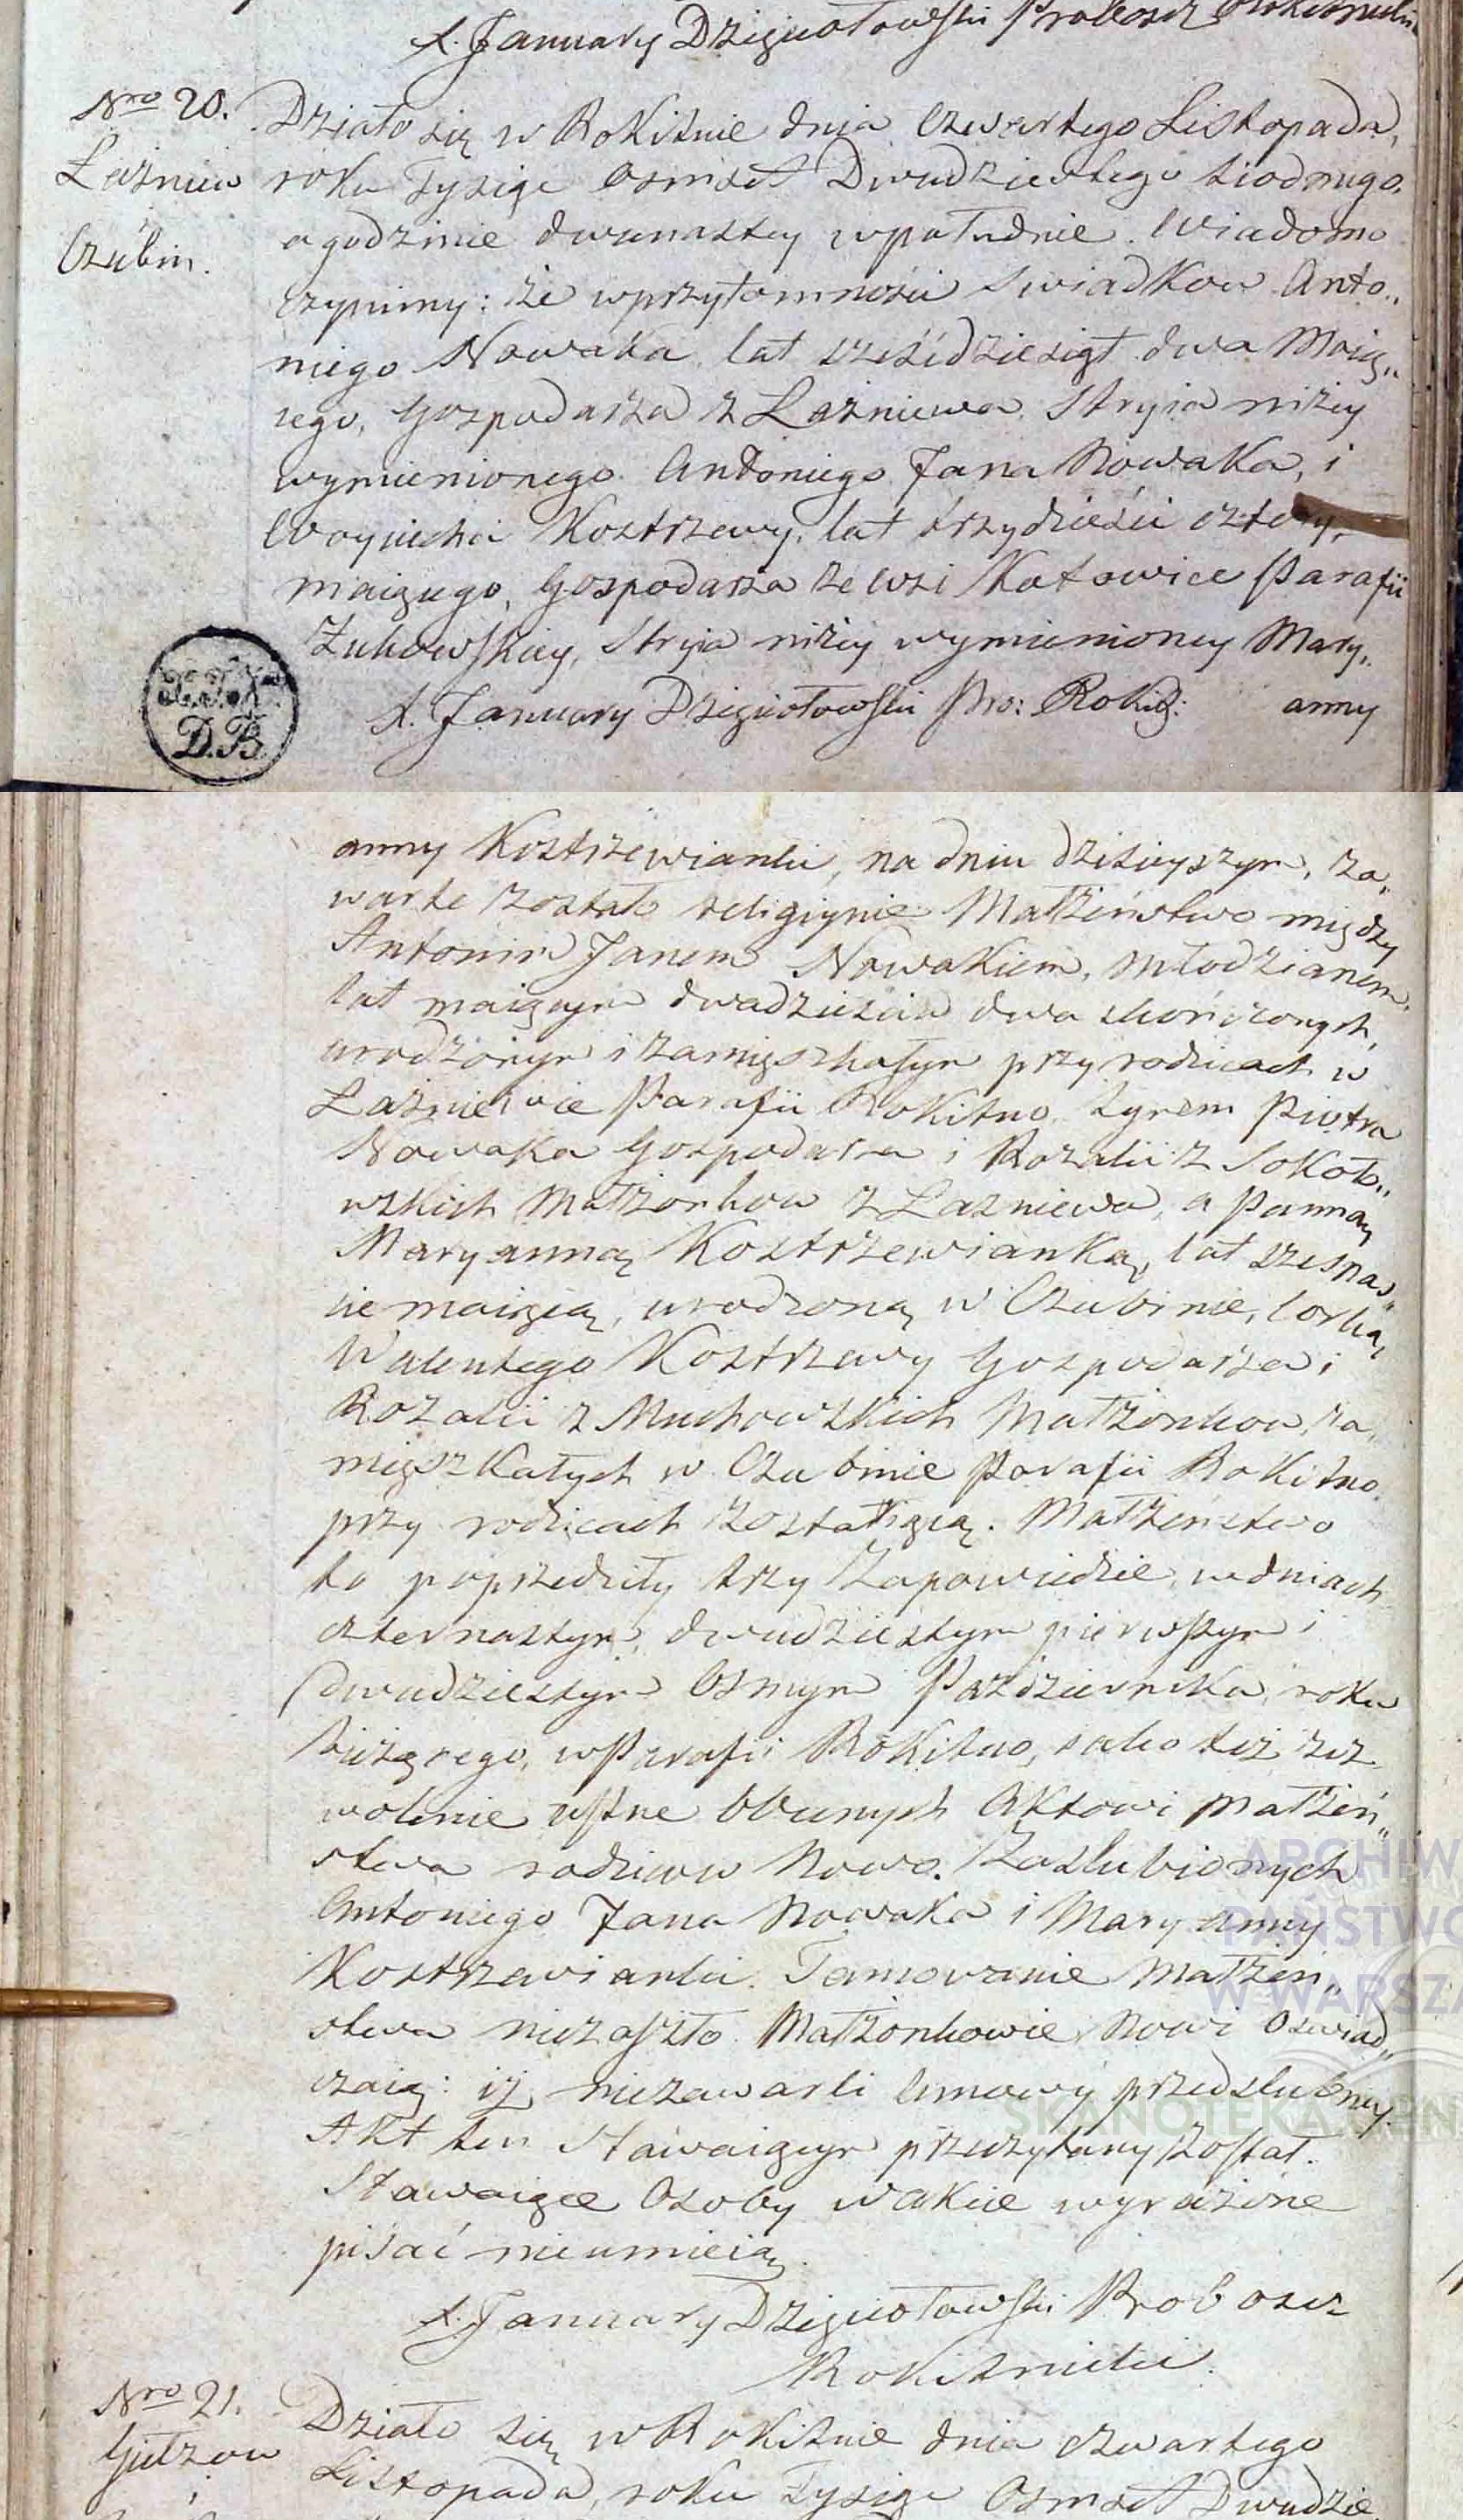 X. January Dzięciołowski Proboszcz Rokitnicki
Nro 20.
Łaźniew
Czubin.
Działo się w Rokitnie dnia Czwartego Listopada,
roku Tysiąc Osmset Dwudziestego siodmego,
o godzinie dwunastey wpołudnie. Wiadomo
czynimy: że wprzytomności Swiadkow Anto„
niego Nowaka lat sześćdziesiąt dwa Maią„
cego, Gospodarza z Łaźniewa, Stryia niżey
wymienionego Antoniego Jana Nowaka, i
Woyciecha Kostrzewy, lat trzydzieści cztery,
maiącego, Gospodarza ze wsi Kotowice Parafii
Żukowskiey, Stryia niżey wymienioney Mary„
X. January Dzięciołowski Pro: Rokit: anny
D.B.
anny Kostrzewianki, na dniu dzisieyszym, za„
warte zostało religiynie Małżeństwo między
Antonim Janem Nowakiem, Młodzianem
lat maiącym dwadzieścia dwa skończonych,
urodzonym i zamięszkałym przy rodzicach w
Łaźniewie Parafii Rokitno, synem Piotra
Nowaka Gospodarza i Rozalii z Sokoło„
wskich Małżonkow z Łaźniewa, a Panną
Maryanną Kostrzewianką, lat szesnaś„
cie maiącą, urodzoną w Czubinie, Corką
Walentego Kostrzewy Gospodarza i
Rozalii z Muchowskich Małżonkow, za„
mięszkałych w Czubinie Parafii Rokitno
przy rodzicach zostaiącą. Małżeństwo
to poprzedziły trzy Zapowiedzie, wdniach
czternastym, dwudziestym pierwszym i
dwudziestym Osmym Października, roku
bieżącego, wParafii Rokitno, iako też zez„
wolenie ustne Obecnych Aktowi Małżeń„
stwa rodzicow Nowo. Zaslubionych
Antoniego Jana Nowaka i Maryanny
Kostrzewianki. Tamowanie Małżeń„
stwa niezaszło. Małżonkowie Nowi Oswiad„
czaią: iż niezawarli Umowy przedslubney.
Akt ten Stawaiącym przeczytany został.
Stawaiące Osoby wakcie wyrażone
pisać nieumieią.
X. January Dzięciołowski Probosz
Rokitnicki.
Nro 21.
i
Działo się wRokitnie dnia Czwartego
Listopada, roku Tysiąc Osmset Dwudzie
ARCHIW
PAŃSTWO
W WARSZA
SKANOTEKA